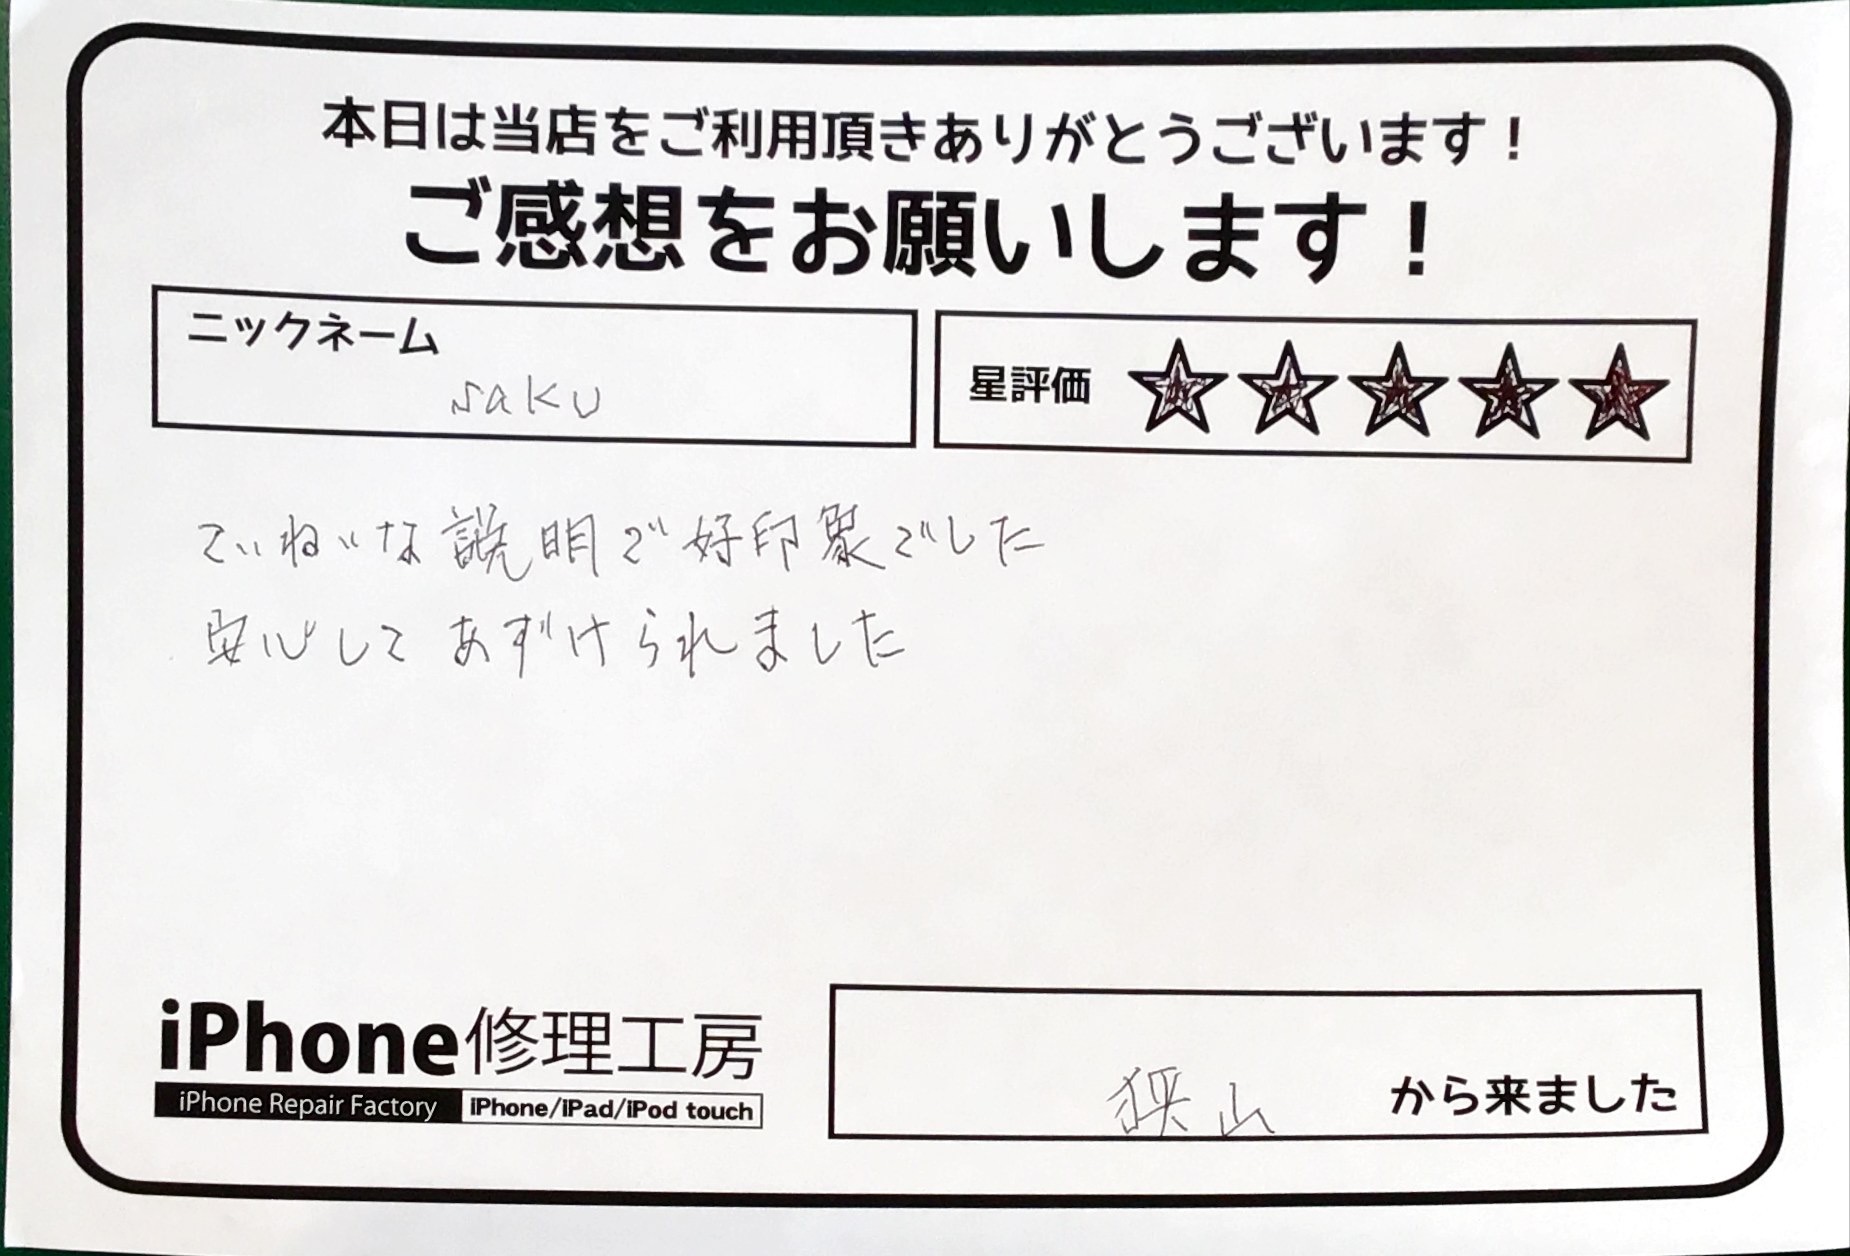 本日は当店をご利用頂きありがとうございます！
ご感想をお願いします！
ニックネーム
saku
星評価 ★★★★★
ていねいな説明で好印象でした
安心してあずけられました
iPhone修理工房
iPhone Repair Factory iPhone/iPad/iPod touch
狭山 から来ました